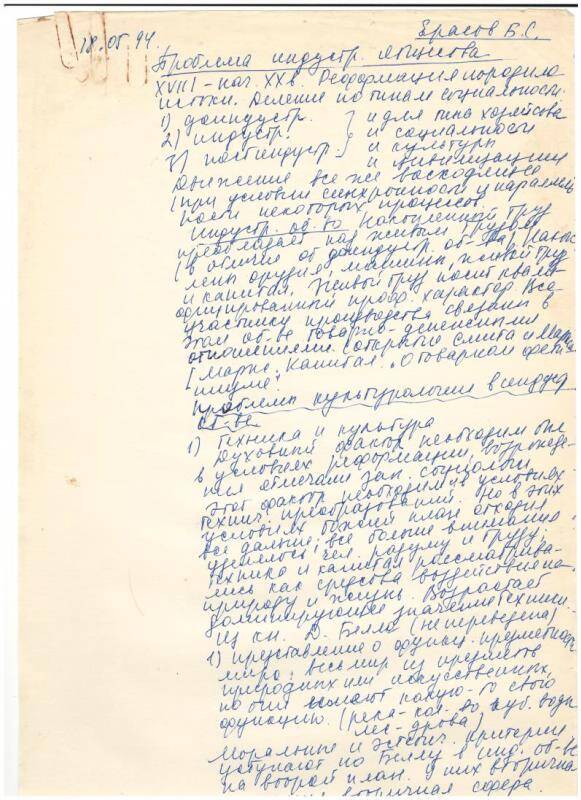 18.05.94.
Ерасов Б.С.
Проблема индустр. общества
XVIII – нач. XX в. Реформация породила
истоки. Деление по типам социальности:
1) доиндустр. } и для типа хозяйства
2) индустр. } и социальности
3) постиндустр. } и культуры
и цивилизации
Движение все же восходящее
(при условии синхронности и параллель-
ности некоторых процессов.
Индустр. об-во Накопленный труд
преобладает над живым трудом
(в отличие от доиндустр. об-ва). Накоп-
лены орудия, машины, живой труд
и капитал. Живой труд носит квали-
фицированный проф. характер. Все
участники производства связаны в
этом об-ве товарно-денежными
отношениями. (открытие Смита и Маркса
[Маркс. Капитал. „О товарном фети-
шизме"
Проблемы культурологии в индустр
об-ве
1) Техника и культура
Духовный фактор необходим был
в условиях реформации, возрожде-
ния отмечали зап. социологи.
Этот фактор необходим и в условиях
технич. преобразований. Но в этих
условиях божий план отходил
все дальше, все больше внимания
уделялось чел. разуму и труду;
техника и капитал рассматрива-
лись как средства воздействия на
природу и жизнь. Возрастает
доминирующее значение техники.
Из кн. Д. Белла (не переведена)
1) представление о функц. предметном
мире: весь мир из предметов
природных или искусственных,
но они имеют какую-то свою
функцию. (река - кол-во куб. воды
лес - дрова)
Моральные и эстетич. критерии
уступают по Беллу в инд. об-ве
на второй план. У них вторична
вторичная сфера.